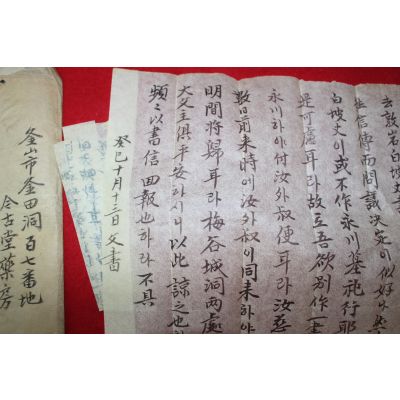 去敦岩白坡丈
生信傳而問議決定이似好나然
白坡丈이或不作永川墓祀行耶
是可慮耳라故로吾欲別作一書
永川하야付汝外叔便耳라汝慈
數日前来時에汝外叔이同来하야
明間將歸耳라梅谷城洞兩處
大父主俱平安하시니以此諒之也하
頻々以書信回報也하라不具
癸巳十月十三日父書
釜山市釜田洞百七番地
今古堂藥房